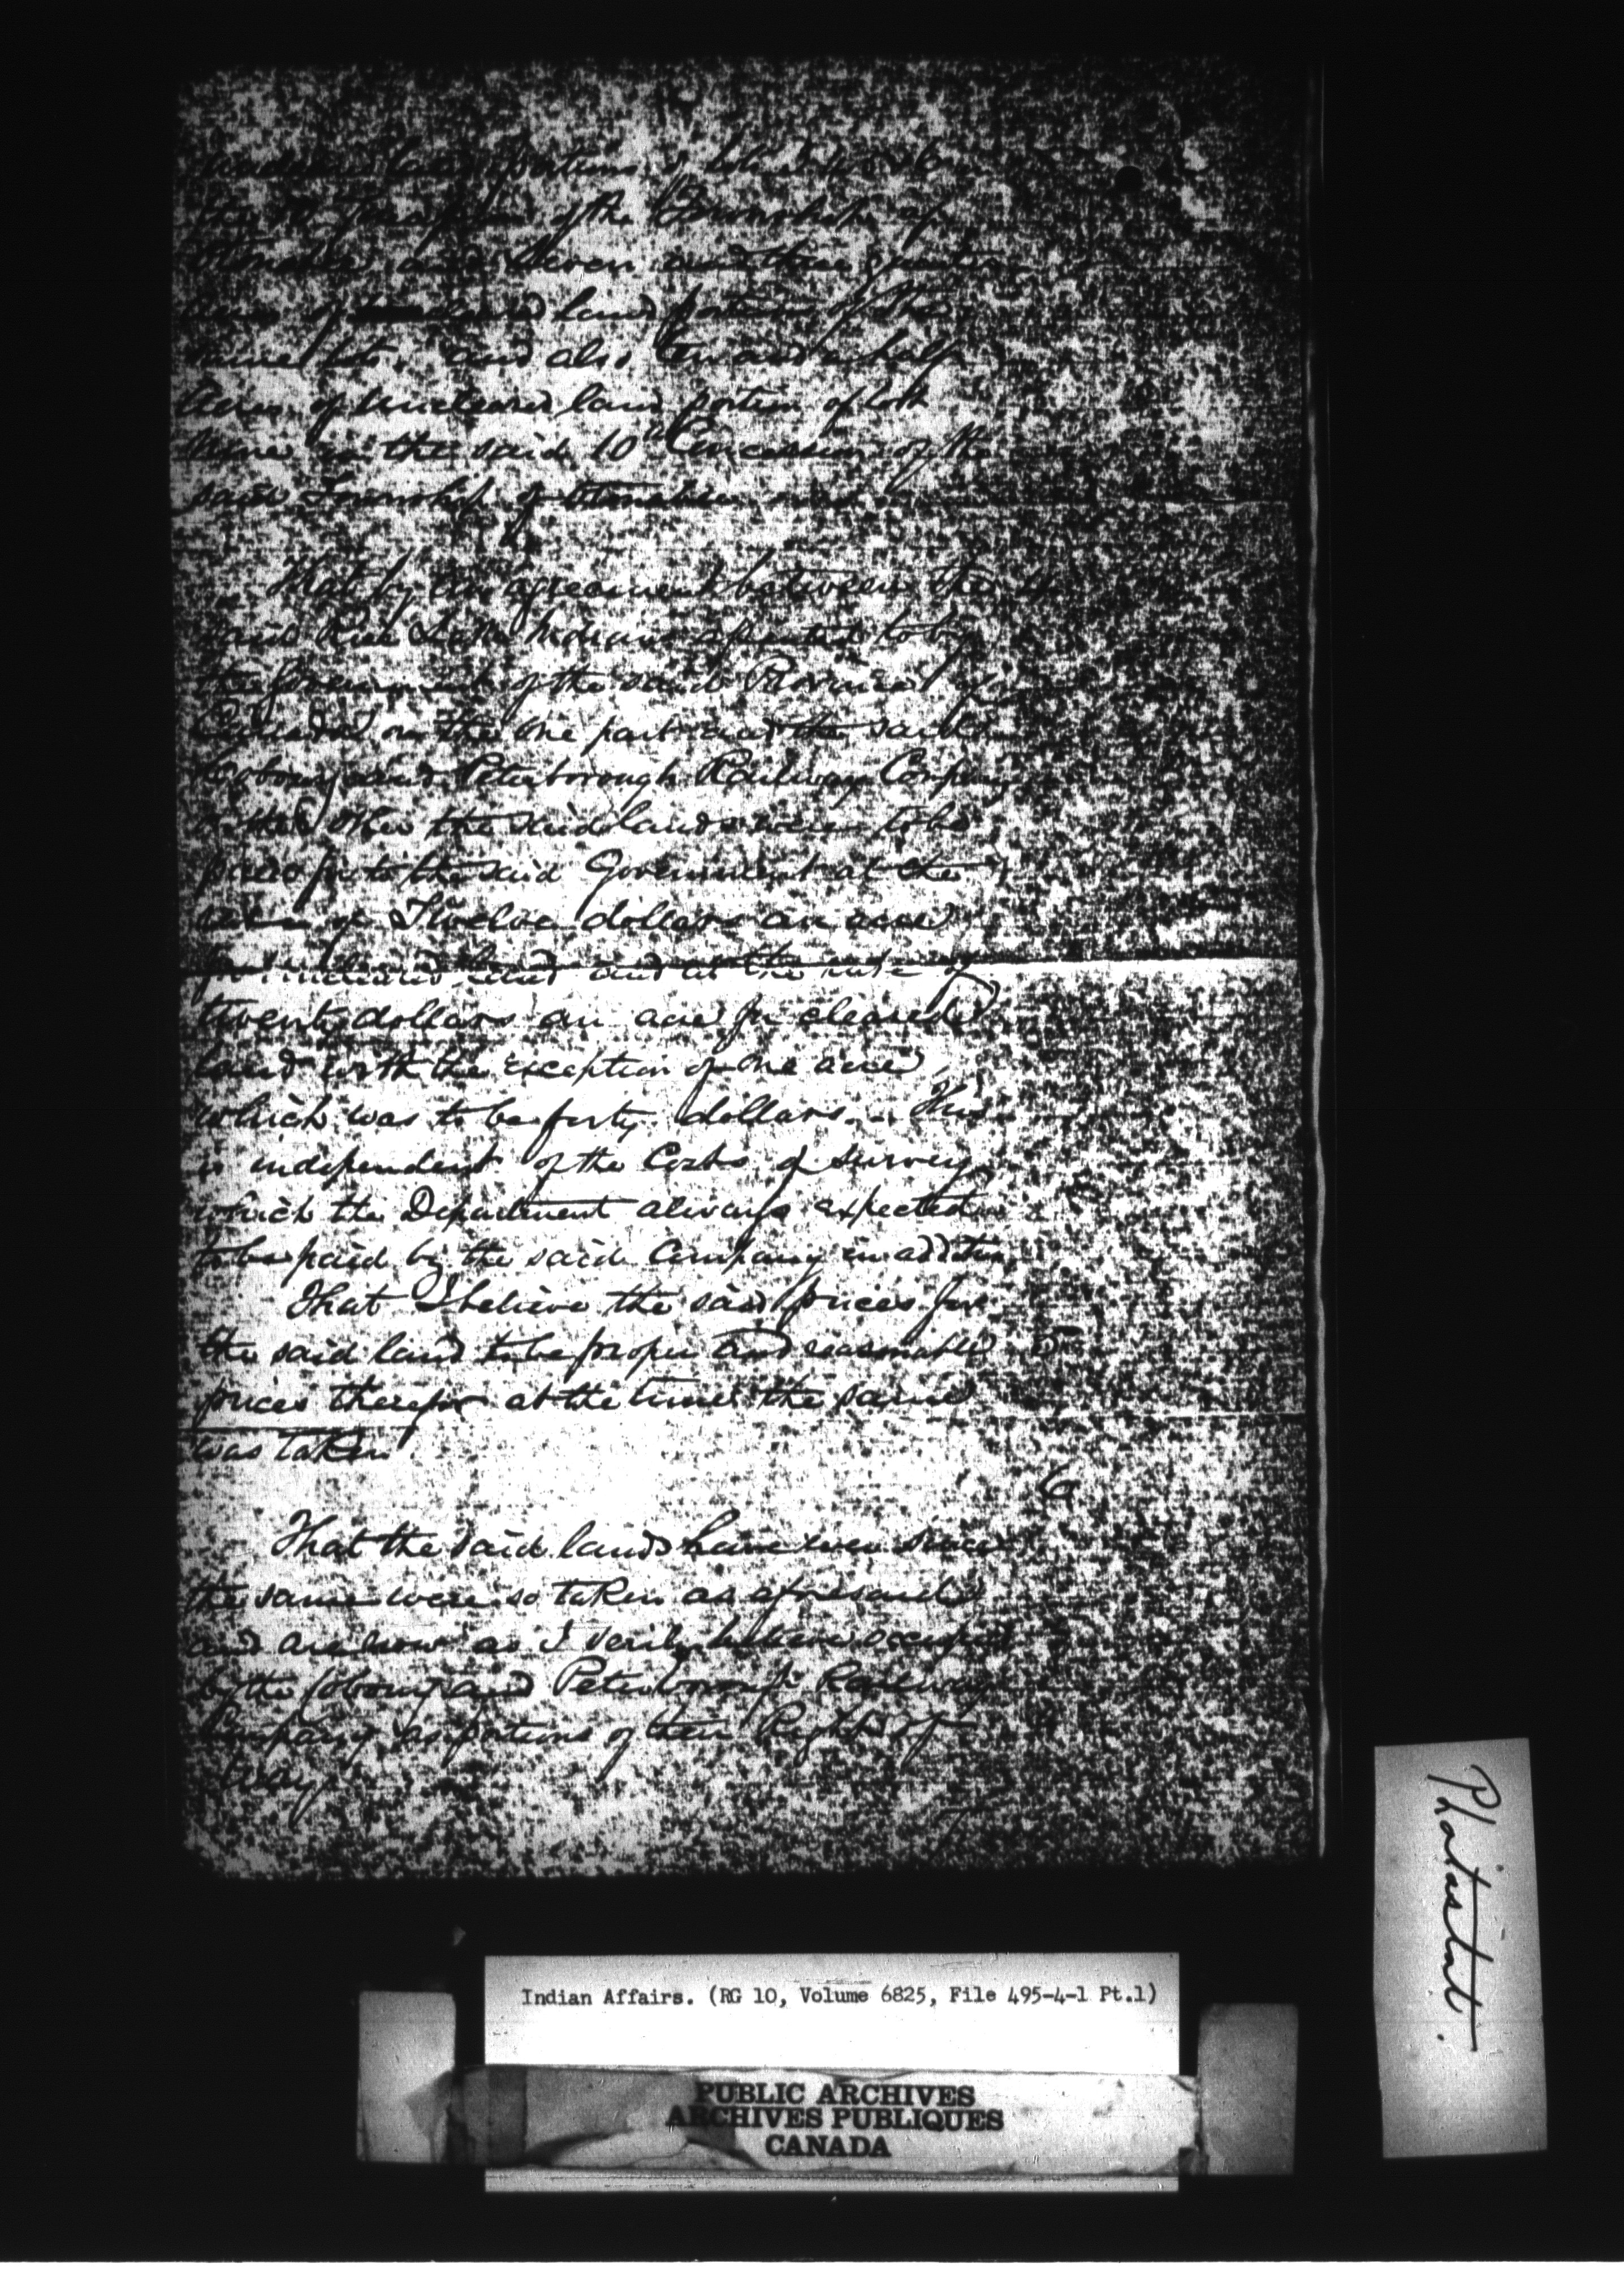 land portions of
the 10 of the Township of
and
acres of land portion of the
same lot. and also ten and a half
Acres of Uncleared land portion of lot
nine in the said 10th Concession of the
said Township of
That by an agreement between the
said Rice Lake Indians to by
the Government of the said Province of
Canada on the one part and the said
Cobourg and Peterborough Railway Company
the other the said lands were to be
for to the said Government at the
of Twelve dollars an acre
for uncleared land and at the rate of
twenty dollars an acre for cleared
land with the exception of one acre
which was to be forty dollars. This
is independent of the Costs of survey
which the Department always expected
to be paid by the said Company in addition
That I believe the said prices for
the said land to be proper and reasonable
prices therefor at the time the same
was taken
6
That the said lands have ever since
the same were so taken as aforesaid
and are now as I verily believe occupied
by the Cobourg and Peterborough Railway
Company as portions of their Right of
Way
Photostat.
Indian Affairs. (RG 10, Volume 6825, File 495-4-1 Pt.1)
PUBLIC ARCHIVES
ARCHIVES PUBLIQUES
CANADA